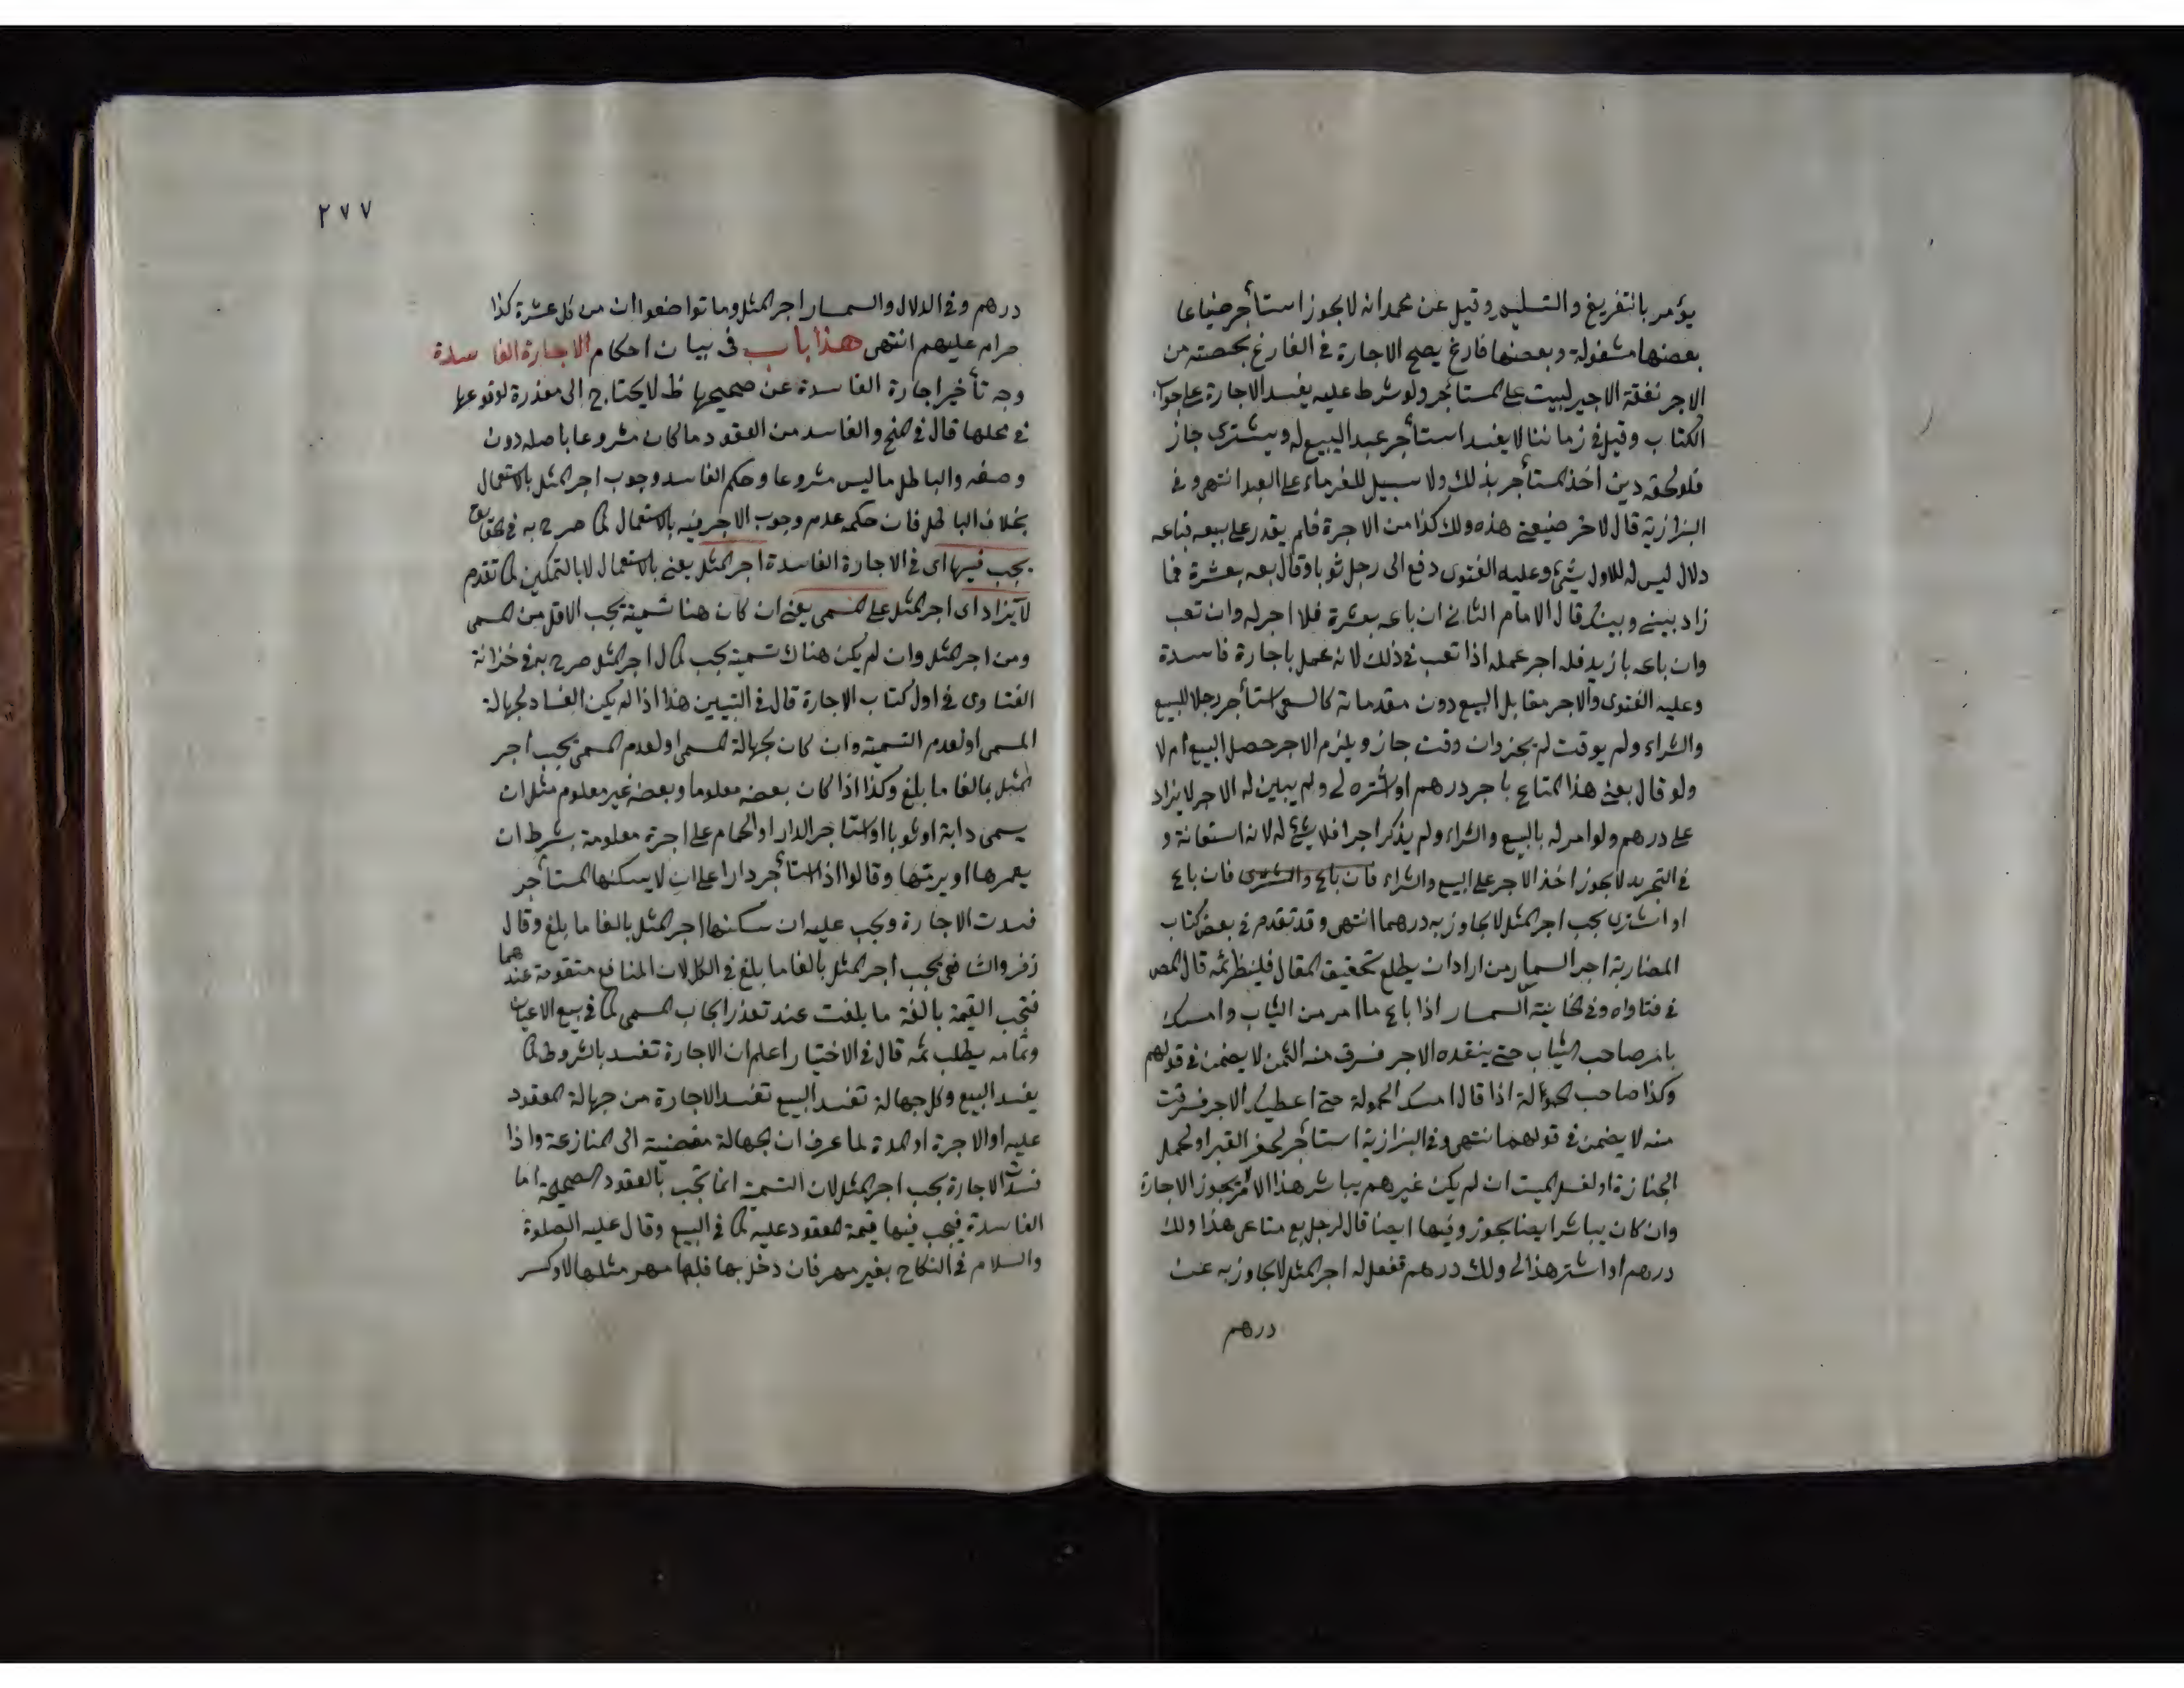 يؤمر بالتفريغ والتسليم وقيل عن محمد انه لا يجوز استأجر ضياعا
بعضها مشغولة وبعضها فارغ يصح الاجارة في الفارغ بحصته من
الاجر نفقة الاجير ليست على المستأجر ولو شرط عليه يفسد الاجارة على جواب
الكتاب وقيل في زماننا لا يفسد استأجر عبدا ليبيع له ويشتري جاز
فلو لحقه دين اخذ المستأجر بذلك ولا سبيل للغرماء على العبد انتهى وفي
البزازية قال لاخر ضيعتي هذه ولك كذا من الاجرة فلم يقدر على بيعه فباعه
دلال ليس له للاول شيء وعليه الفتوى دفع الى رجل ثوبا وقال بعه بعشرة فما
زاد بيني وبينك قال الامام الثاني ان باعه بعشرة فلا اجر له وان تعب
وان باعه بازيد فله اجر عمله اذا تعب في ذلك لانه عمل باجارة فاسدة
وعليه الفتوى والاجر مقابل البيع دون مقدماته كالسعي استأجر رجلا للبيع
والشراء ولم يوقت لم يجز وان وقت جاز ويلزم الاجر حصل البيع ام لا
ولو قال بعني هذا المتاع باجر درهم او اشتره لي ولم يبين له الاجر لا يزاد
على درهم ولو امر له بالبيع والشراء ولم يذكر اجرا فلا شيء له لانه استعانة و
في التجريد لا يجوز اخذ الاجر على البيع والشراء فان باع والشرى فان باع
او اشترى يجب اجر المثل لا يجاوز به درهما انتهى وقد تقدم في بعض كتاب
المضاربة اجر السمسار من اراد ان يطلع تحقيق المقال فلينظر ثمه قال المص
في فتاواه وفي الخانية السمسار اذا باع ما امر من الثياب وامسك
بامر صاحب الثياب حتى ينقده الاجر فسرق منه الثمن لا يضمن في قولهم
وكذا صاحب الحمولة اذا قال امسك الحمولة حتى اعطيك الاجر فسرقت
منه لا يضمن في قولهم انتهى وفي البزازية استأجر لحفر القبر او لحمل
الجنازة او لغسل الميت ان لم يكن غيرهم يباشر هذا الامر يجوز الاجارة
وان كان يباشر ايضا يجوز وفيها ايضا قال لرجل بع متاعي هذا ولك
درهم او اشتر هذا لي ولك درهم ففعل له اجر المثل لا يجاوز به عن
درهم
٢٧٧
درهم وفي الدلال والسمسار اجر المثل وما تواضعوا ان من كل عشرة كذا
حرام عليهم انتهى هذا باب في بيان احكام الاجارة الفاسدة
وجه تأخير اجارة الفاسدة عن صحيحها ظ لا يحتاج الى معذرة لوقوعها
في محلها قال في المنح والفاسد من العقود ما كان مشروعا باصله دون
وصفه والباطل ما ليس مشروعا وحكم الفاسد وجوب اجر المثل بالاستعمال
بخلاف الباطل فان حكمه عدم وجوب الاجر فيه بالاستعمال كما صرح به في الحقايق
يجب فيها اى في الاجارة الفاسدة اجر المثل يعني بالاستعمال لا بالتمكين كما تقدم
لا يزاد اى اجر المثل على المسمى يعني ان كان هنا تسمية يجب الاقل من المسمى
ومن اجر المثل وان لم يكن هناك تسمية يجب كمال اجر المثل صرح به في خزانة
الفتاوى في اول كتاب الاجارة قال في التبيين هذا اذا لم يكن الفساد لجهالة
المسمى او لعدم التسمية وان كان لجهالة المسمى او لعدم المسمى يجب اجر
المثل بالغا ما بلغ وكذا اذا كان بعضه معلوما وبعضه غير معلوم مثل ان
يسمى دابة او ثوبا او استاجر الدار او الحمام على اجرة معلومة بشرط ان
يعمرها او يرمتها وقالوا اذا استأجر دارا على ان لا يسكنها المستأجر
فسدت الاجارة ويجب عليه ان سكنها اجر المثل بالغا ما بلغ وقال
زفر والشافعي يجب اجر المثل بالغا ما بلغ في الكل لان المنافع متقومة عندهما
فتجب القيمة بالغة ما بلغت عند تعذر ايجاب المسمى كما في بيع الاعيان
وتمامه يطلب ثمه قال في الاختيار اعلم ان الاجارة تفسد بالشروط كما
يفسد البيع وكل جهالة تفسد البيع تفسد الاجارة من جهالة المعقود
عليه او الاجرة او المدة لما عرف ان الجهالة مفضية الى المنازعة واذا
فسدت الاجارة يجب اجر المثل لان التسمية انما تجب بالعقود الصحيحة اما
الفاسدة فيجب فيها قيمة المعقود عليه كما في البيع وقال عليه الصلوة
والسلام في النكاح بغير مهر فان دخل بها فلها مهر مثلها لا وكس